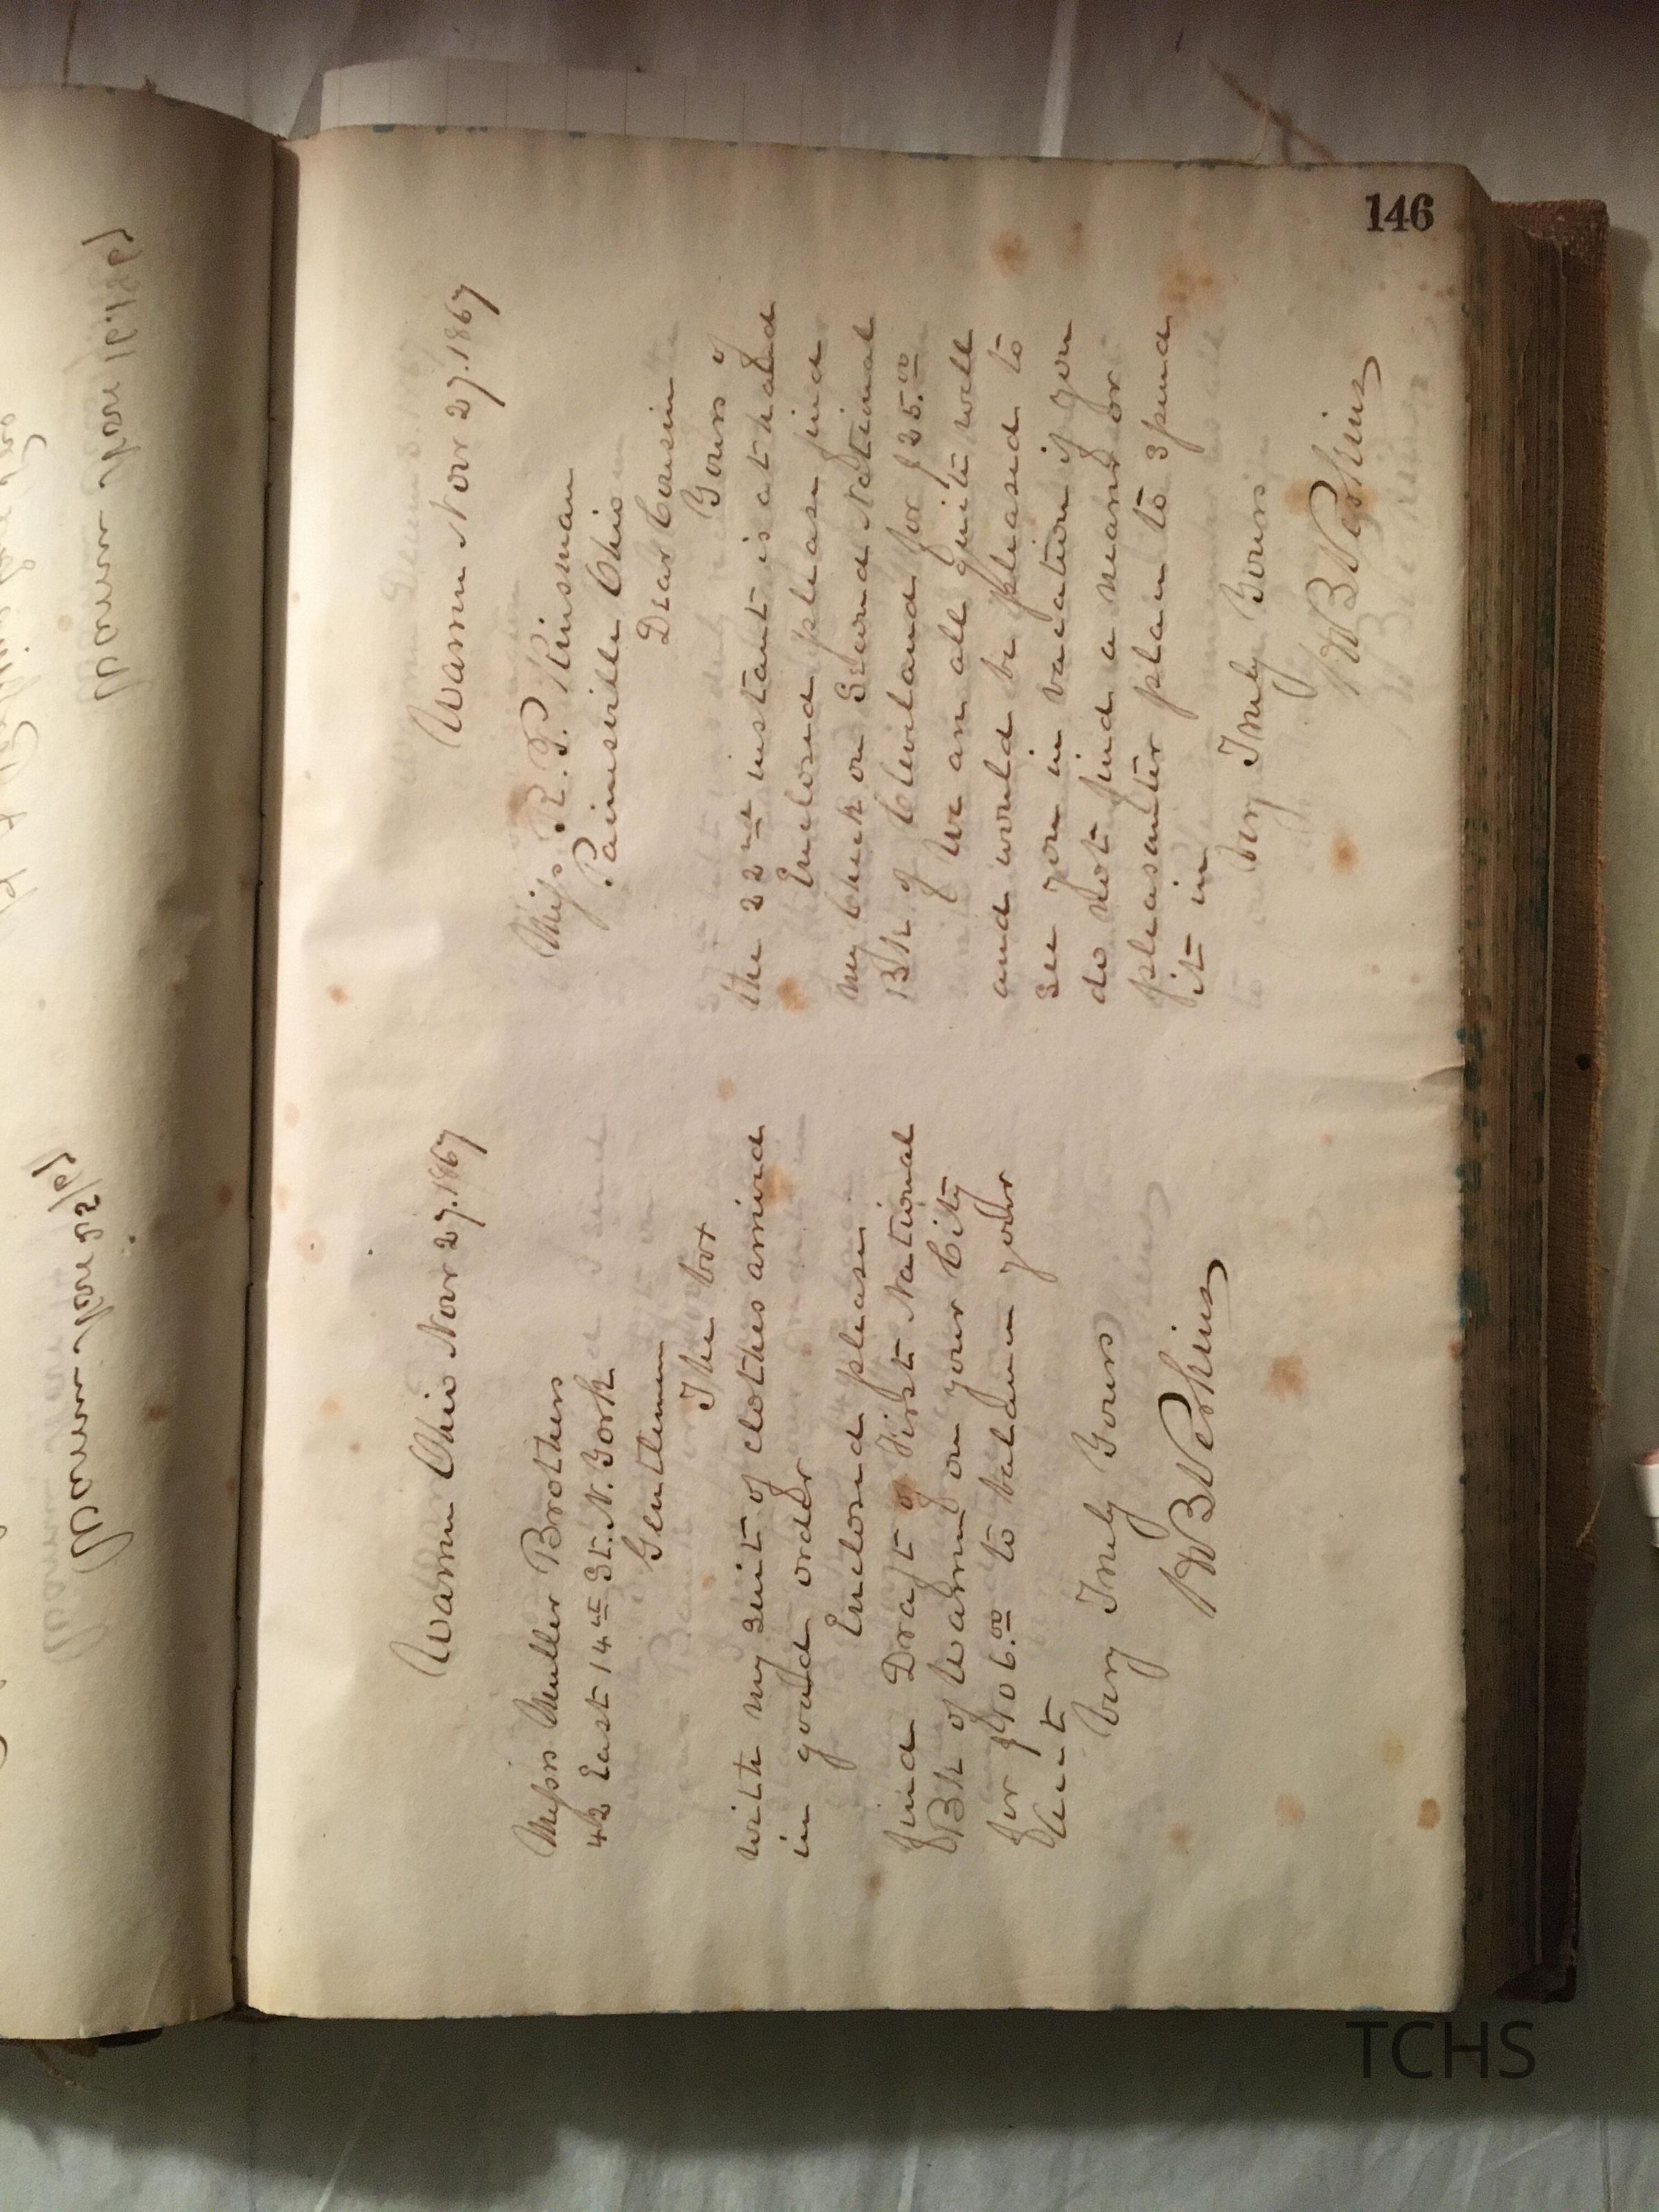 146
Warren Ohio Nov 27. 1867
Messrs Muller Brothers
42 East 14th St. N. York
Gentlemen
The box
with my suit of clothes arrived
in good order
Enclosed please
find Draft of First National
Bk of Warren on your City
for $106.00 to balance your
Acct
Very Truly Yours
H B Perkins
Warren Nov 27. 1867
Miss. R. P. Kinsman
Painsville Ohio
Dear Cousin
Yours of
the 22nd instant is at hand
Enclosed please find
my check on Second National
Bk of Cleveland for $25.00
We are all quite well
and would be pleased to
see you in vacation if you
do not find a nearer or
pleasanter place to spend
it in
Very Truly Yours
H B Perkins
TCHS